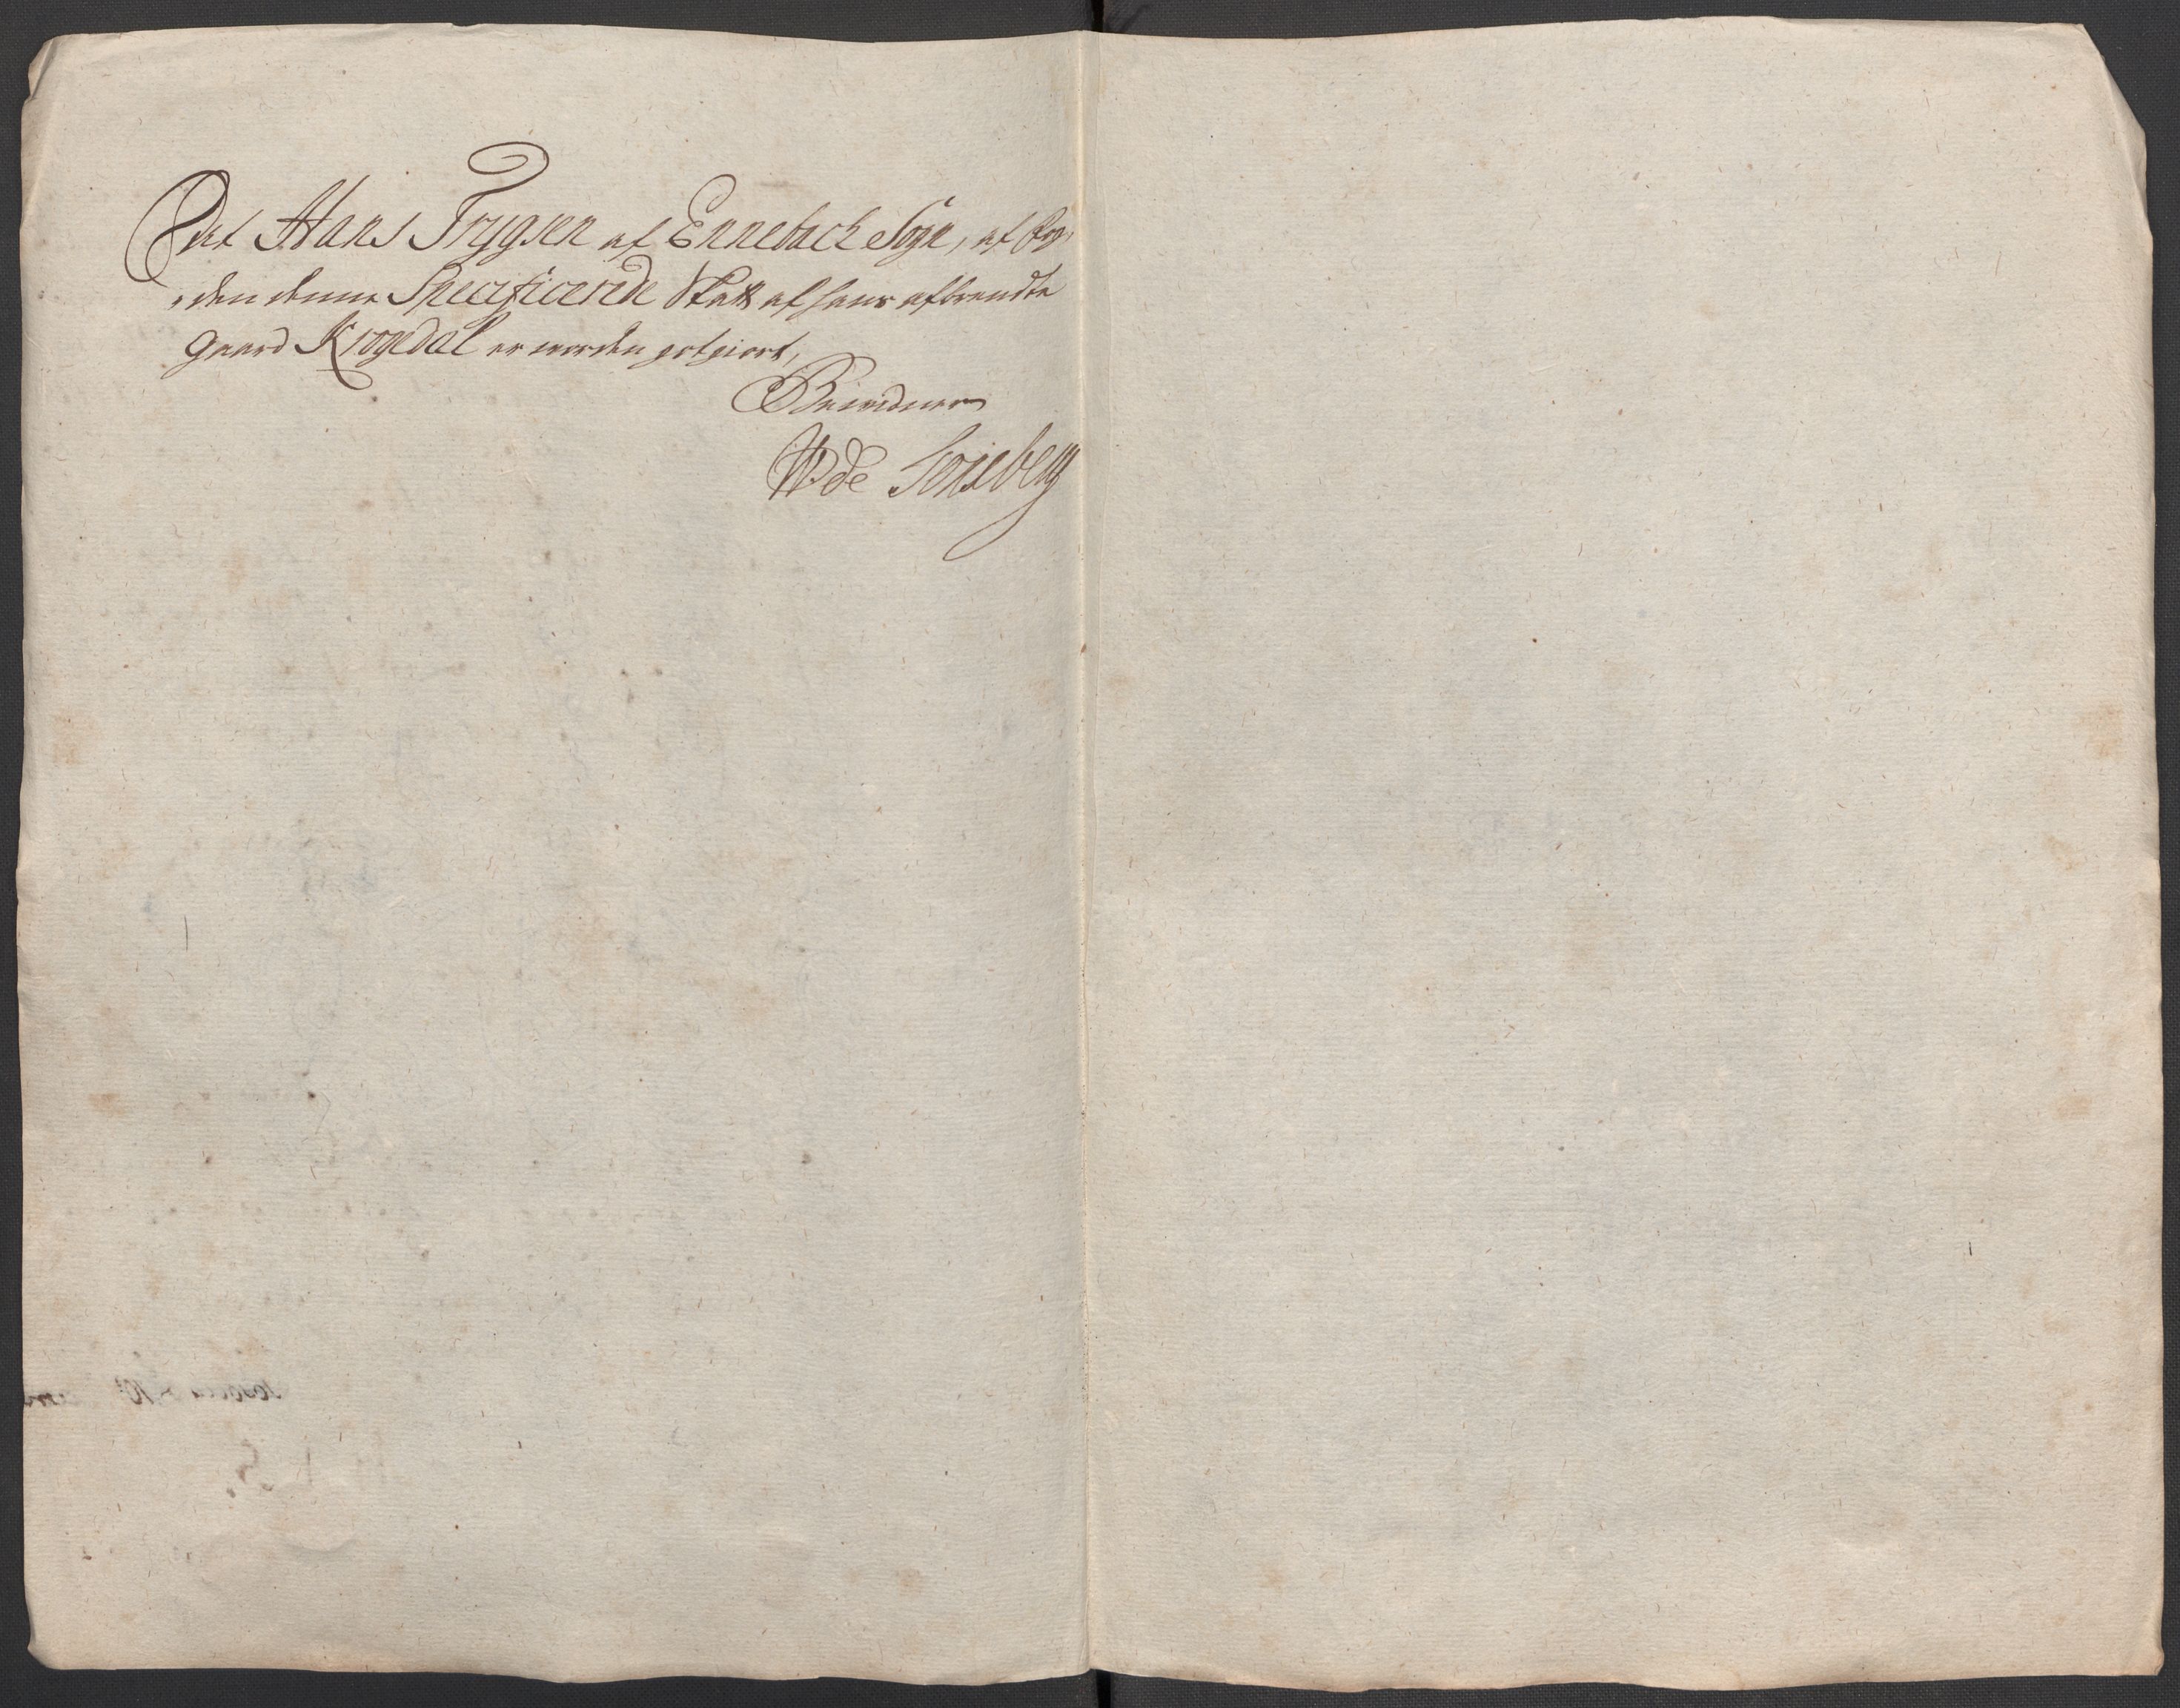 At Hans Trygsen af Ennebach Sogn, af fog,
,den denne Specificerede Skatt af hans afbrendte
gaard Krogedal er worden godgiort,
Bevidner
W de Tonsberg